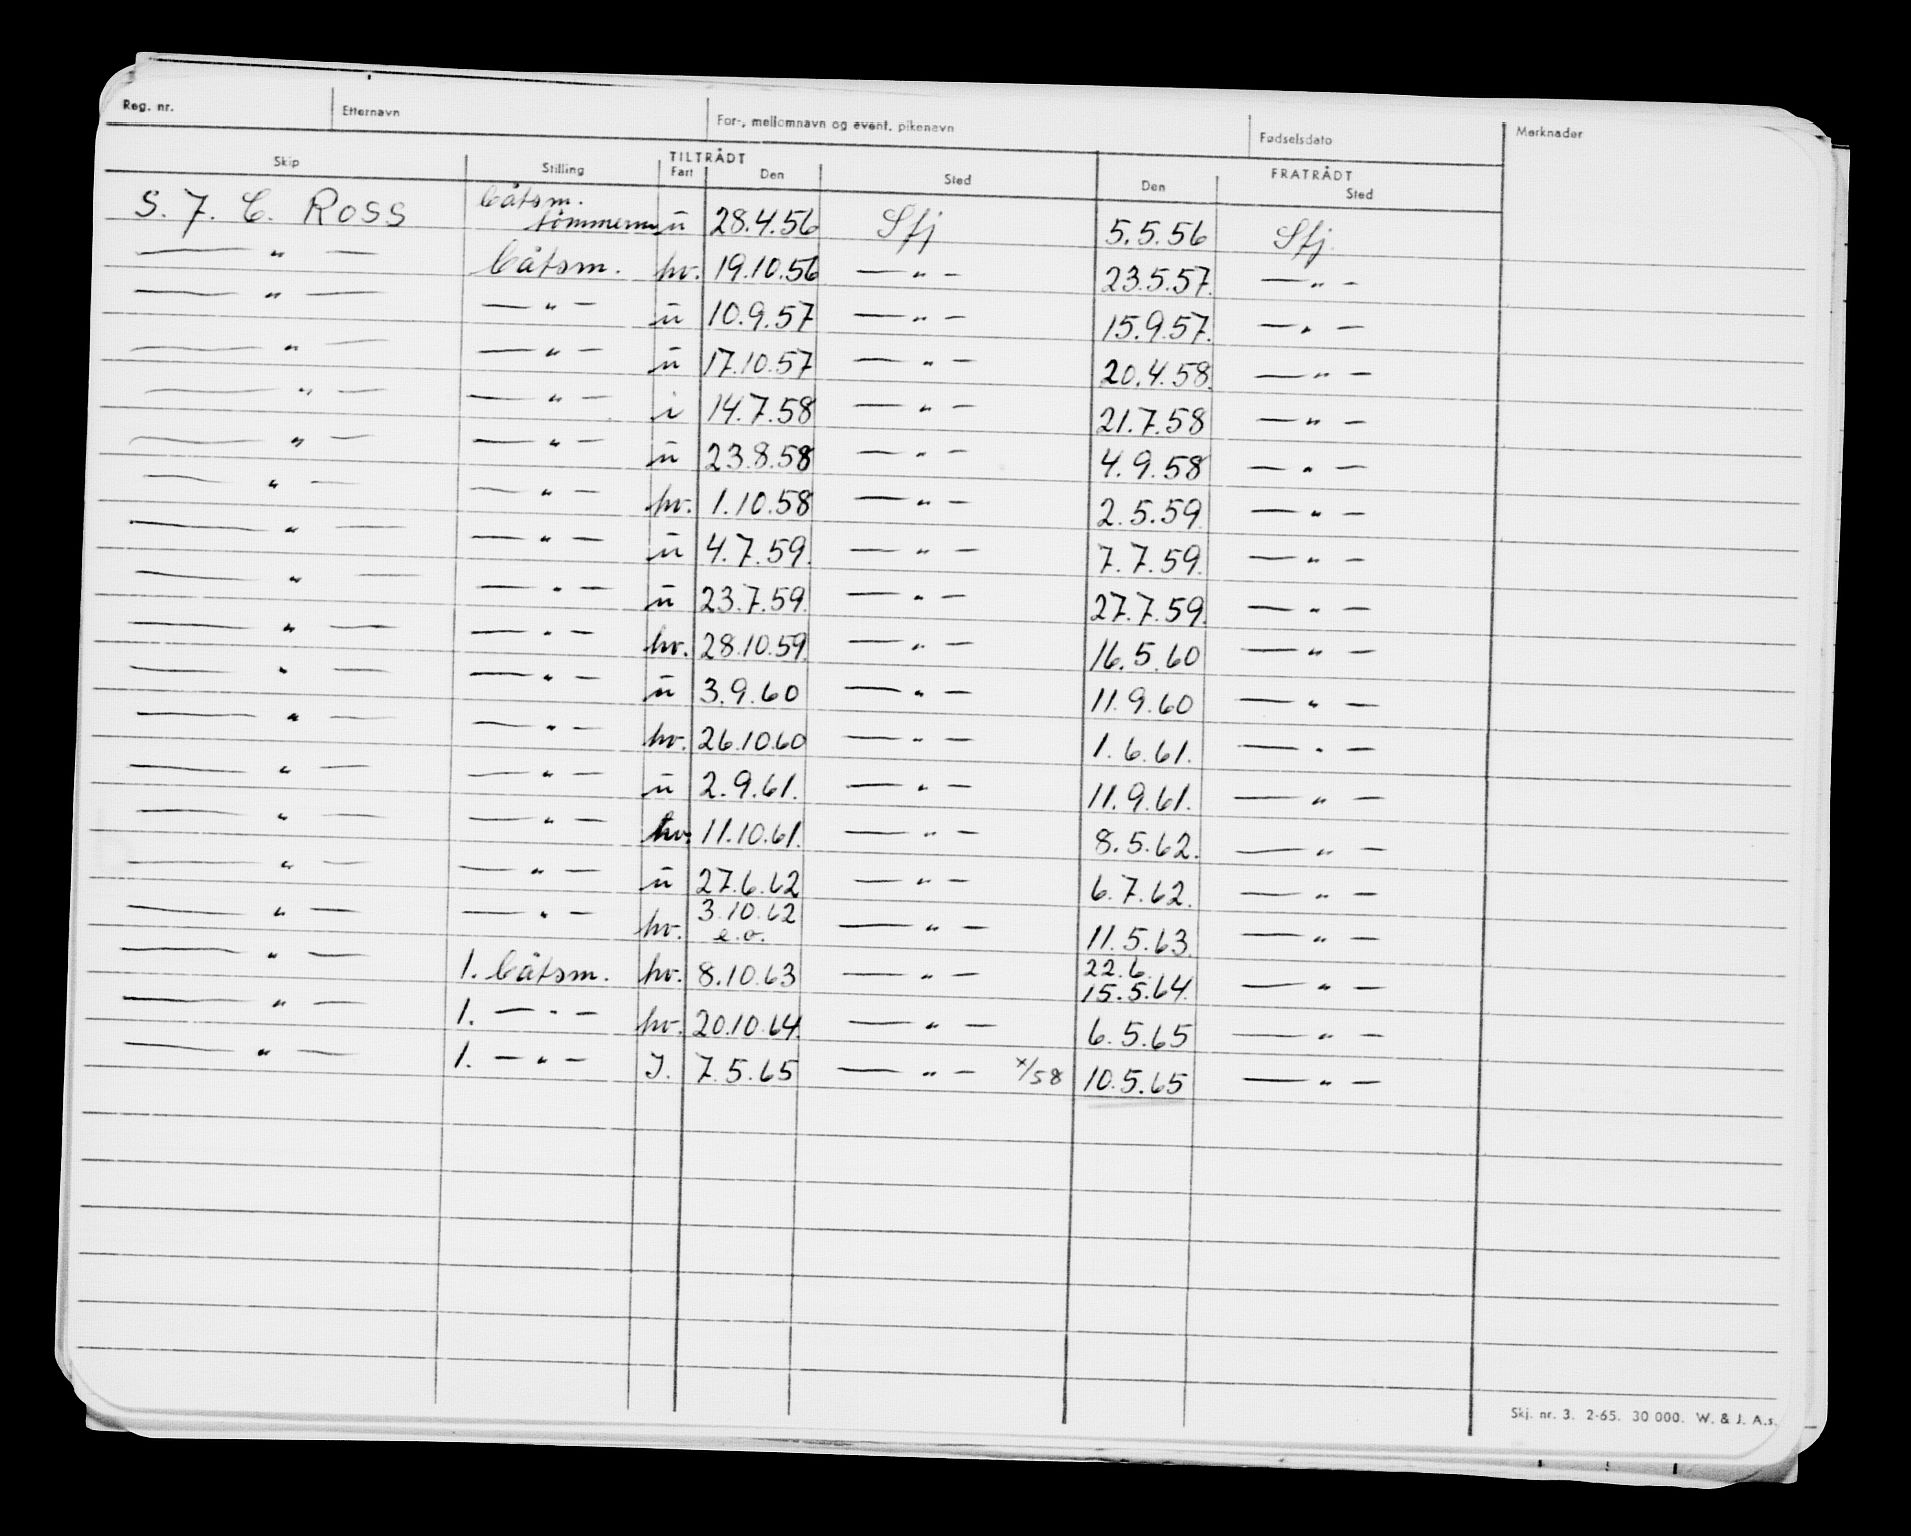 Reg. nr. Etternavn For-, mellomnavn og event. pikenavn Fødselsdato Merknader
TILTRÅDT FRATRÅDT
Skip Stilling Fart Den Sted Den Sted
S. J. C. ROSS båtsm. tömmerm ü 28.4.56 Sfj 5.5.56 Sfj.
— " — båtsm. hv. 19.10.56 — " — 23.5.57. — " —
— " — — " — ü 10.9.57 — " — 15.9.57. — " —
— " — — " — ü 17.10.57 — " — 20.4.58. — " —
— " — — " — i 14.7.58 — " — 21.7.58 — " —
— " — — " — ü 23.8.58 — " — 4.9.58 — " —
— " — — " — hv. 1.10.58 — " — 2.5.59. — " —
— " — — " — ü 4.7.59. — " — 7.7.59. — " —
— " — — " — ü 23.7.59. — " — 27.7.59. — " —
— " — — " — hv. 28.10.59. — " — 16.5.60 — " —
— " — — " — ü 3.9.60 — " — 11.9.60 — " —
— " — — " — hv. 26.10.60 — " — 1.6.61. — " —
— " — — " — ü 2.9.61. — " — 11.9.61. — " —
— " — — " — hv. 11.10.61. — " — 8.5.62. — " —
— " — — " — ü 27.6.62 — " — 6.7.62. — " —
— " — — " — hv. 3.10.62 e.o. — " — 11.5.63. — " —
— " — 1. båtsm. hv. 8.10.63 — " — 22.6. 15.5.64. — " —
— " — 1. — " — hv. 20.10.64. — " — 6.5.65 — " —
— " — 1. — " — J. 7.5.65 — " — x/58 10.5.65 — " —
Skj. nr. 3. 2-65. 30 000. W. & J. A.s.